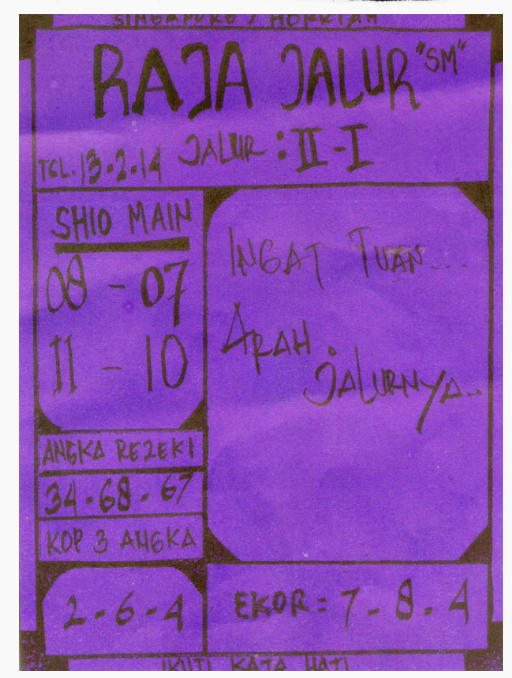 SINGAPORE /
RAJA JALUR "SM"
TGL. 13-2-14 JALUR : II - I
SHIO MAIN
08 - 07
11 - 10
INGAT TUAN...
ARAH
JALURNYA..
ANGKA REZEKI
34 - 68 - 67
KOP 3 ANGKA
2 - 6 - 4
EKOR = 7 - 8 - 4
IKUTI KATA HATI